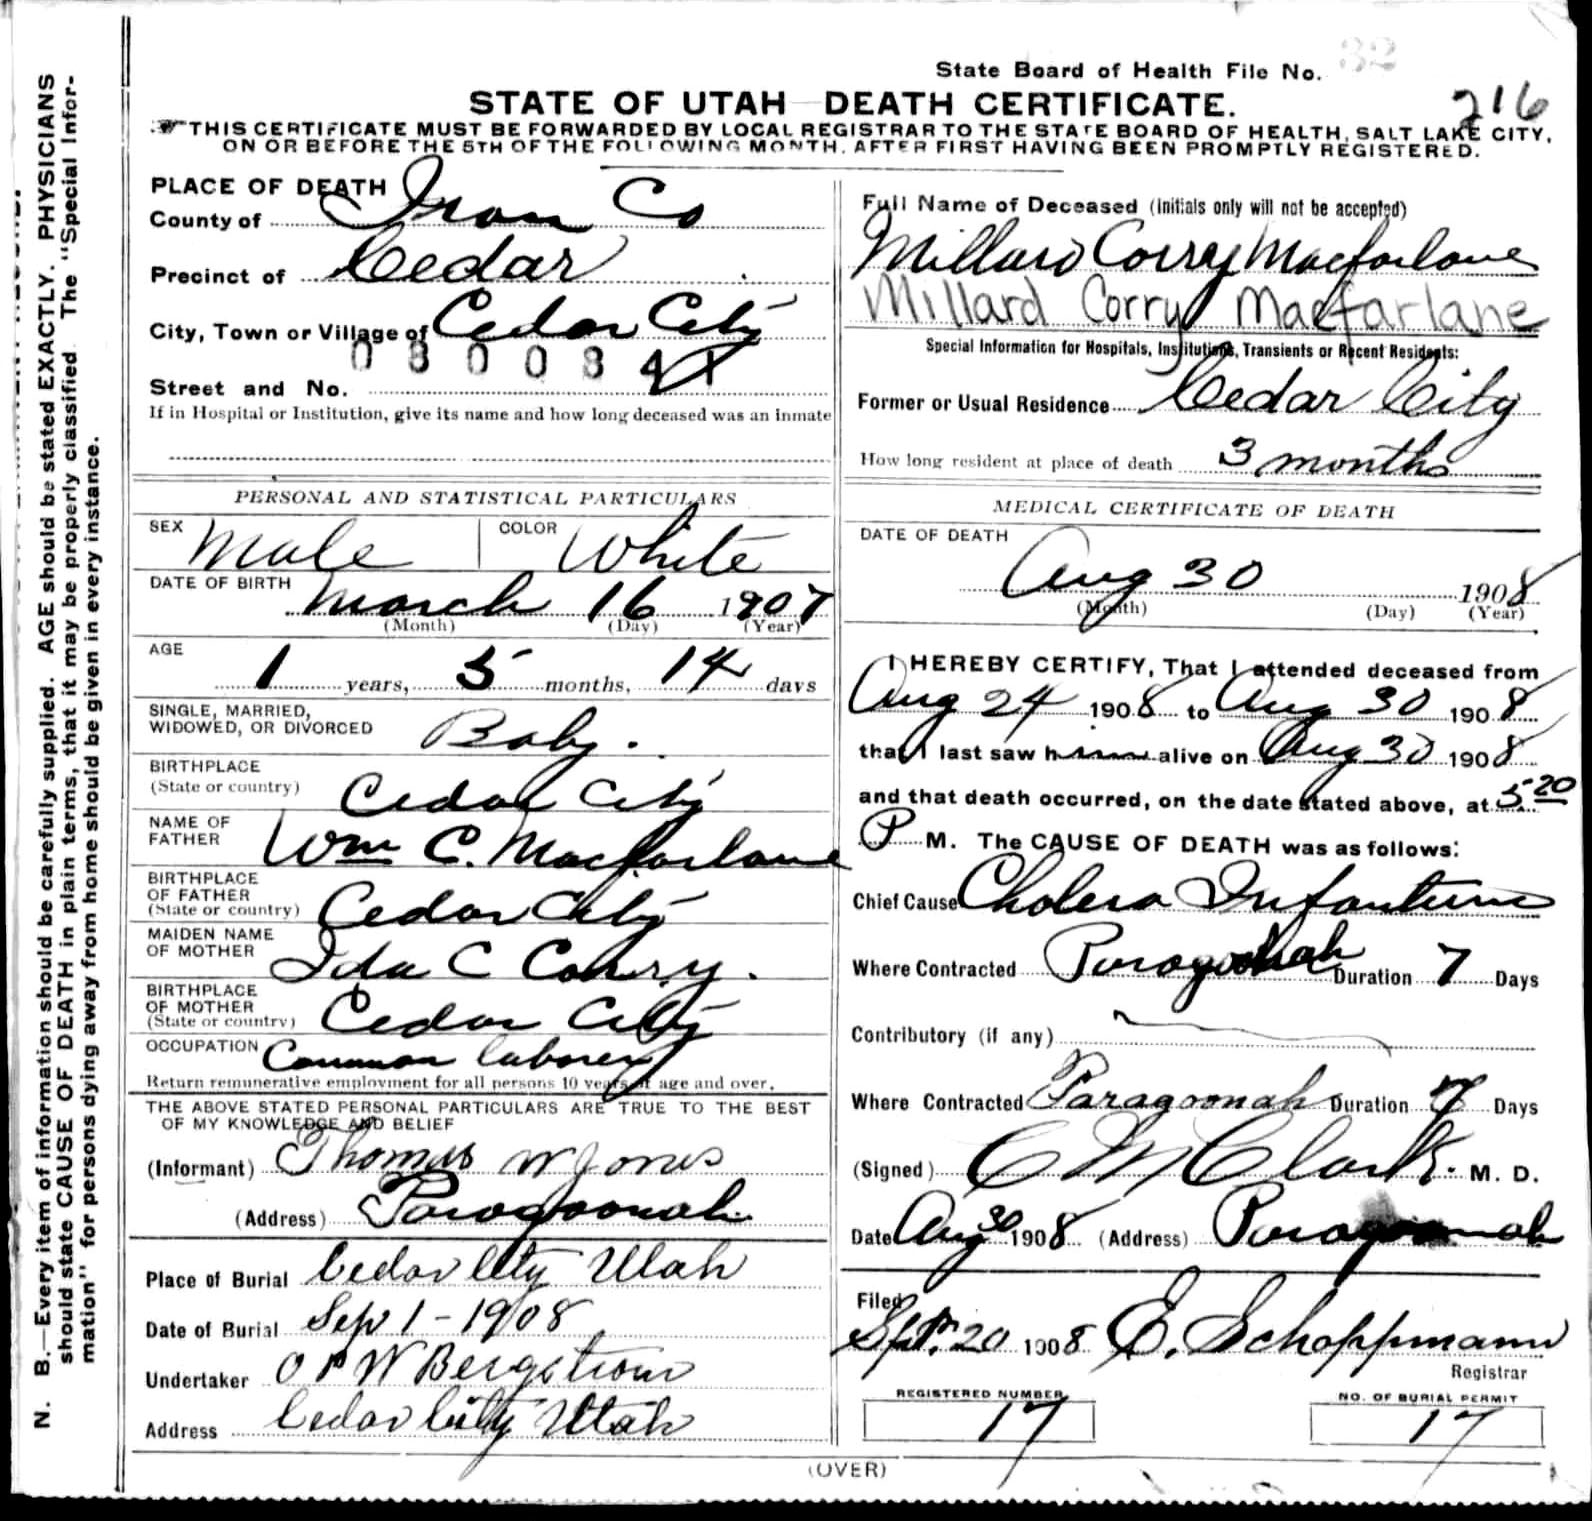 State Board of Health File No. 32
216
STATE OF UTAH DEATH CERTIFICATE.
THIS CERTIFICATE MUST BE FORWARDED BY LOCAL REGISTRAR TO THE STATE BOARD OF HEALTH, SALT LAKE CITY,
ON OR BEFORE THE 5TH OF THE FOLLOWING MONTH, AFTER FIRST HAVING BEEN PROMPTLY REGISTERED.
N. B.—Every item of information should be carefully supplied. AGE should be stated EXACTLY. PHYSICIANS
should state CAUSE OF DEATH in plain terms, that it may be properly classified. The "Special Infor-
mation" for persons dying away from home should be given in every instance.
PLACE OF DEATH
County of Iron Co
Precinct of Cedar
City, Town or Village of Cedar City
Street and No.
If in Hospital or Institution, give its name and how long deceased was an inmate
PERSONAL AND STATISTICAL PARTICULARS
SEX Male COLOR White
DATE OF BIRTH
March 16 1907
(Month) (Day) (Year)
AGE
1 years, 5 months, 14 days
SINGLE, MARRIED,
WIDOWED, OR DIVORCED Baby.
BIRTHPLACE
(State or country) Cedar City
NAME OF
FATHER Wm C. Macfarlane
BIRTHPLACE
OF FATHER
(State or country) Cedar City
MAIDEN NAME
OF MOTHER Ida C Corry.
BIRTHPLACE
OF MOTHER
(State or country) Cedar City
OCCUPATION Common laborer
Return remunerative employment for all persons 10 years of age and over.
THE ABOVE STATED PERSONAL PARTICULARS ARE TRUE TO THE BEST
OF MY KNOWLEDGE AND BELIEF
(Informant) Thomas W Jones
(Address) Paragoonah
Place of Burial Cedar City Utah
Date of Burial Sep 1 - 1908
Undertaker O P W Bergstrom
Address Cedar City Utah
Full Name of Deceased (Initials only will not be accepted)
Millard Corry Macfarlane
Millard Corry Macfarlane
Special Information for Hospitals, Institutions, Transients or Recent Residents:
Former or Usual Residence Cedar City
How long resident at place of death 3 months
MEDICAL CERTIFICATE OF DEATH
DATE OF DEATH
Aug 30 1908
(Month) (Day) (Year)
I HEREBY CERTIFY, That I attended deceased from
Aug 24 1908 to Aug 30 1908
that I last saw him alive on Aug 30 1908
and that death occurred, on the date stated above, at 5.20
P M. The CAUSE OF DEATH was as follows:
Chief Cause Cholera Infantum
Where Contracted Paragoonah Duration 7 Days
Contributory (if any)
Where Contracted Paragoonah Duration 7 Days
(Signed) C M Clark M. D.
Date Aug 30 1908 (Address) Paragoonah
Filed
Sept. 20 1908 E. Schoppmann
Registrar
REGISTERED NUMBER
17
NO. OF BURIAL PERMIT
17
(OVER)